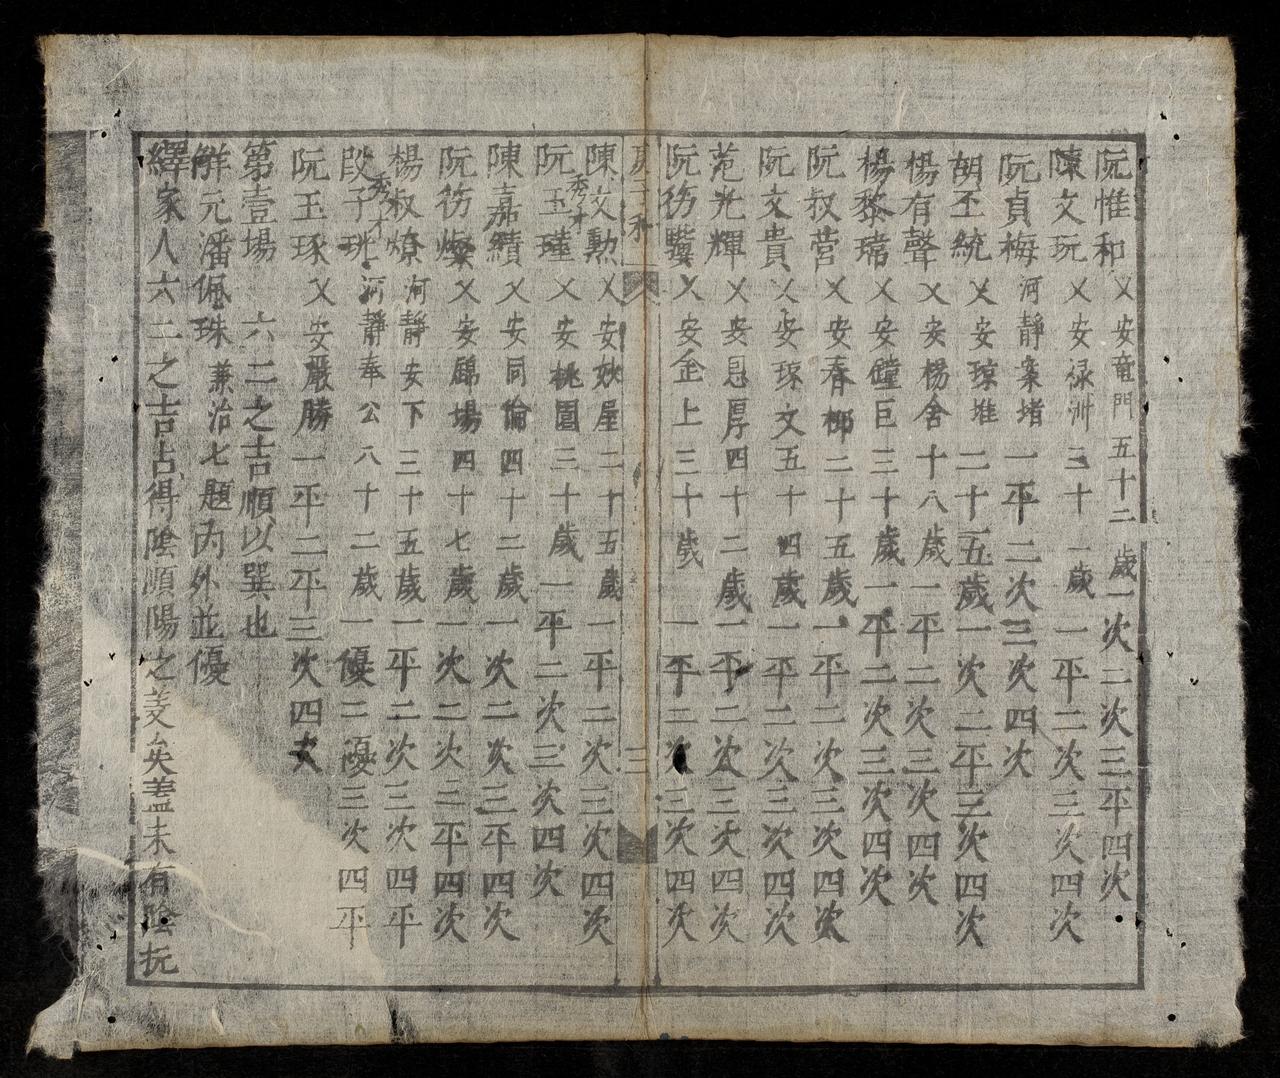 阮惟和 乂安竜門五十二歲一次二次三平四次
陳文玩 乂安禄洲三十一歲一平二次三次四次
阮貞梅 河靜 堵一平二次三次四次
胡丕統 乂安瓊堆二十五歲一次二平三次四次
楊有聲 乂安楊舍十八歲一平二次三次四次
楊黎 乂安鐘巨三十歲一平二次三次四次
阮叔营 乂安春柳二十五歲一平二次三次四次
阮文貴 乂安琼文五十四歲一平二次三次四次
范光輝 乂安恩厚四十二歲一平二次三次四次
阮彷 乂安企上三十歲一平二次三次四次
三
陳文勲 乂安妙屋二十五歲一平二次三次四次
阮玉瑾 秀才 乂安桃園三十歲一平二次三次四次
陳嘉績 乂安同倫四十二歲一次二次三平四次
阮彷 乂安錦場四十七歲一次二次三平四次
楊叔燎 河靜安下三十五歲一平二次三次四平
段子珖 秀才 河靜奉公八十二歲一優二優三次四平
阮玉琢 乂安嚴勝一平二平三次四次
第壹場 六二之吉順以巽也
解元潘佩珠 兼治七題內外並優
繹家人六二之吉占得陰順陽之羙矣盖未有陰抚